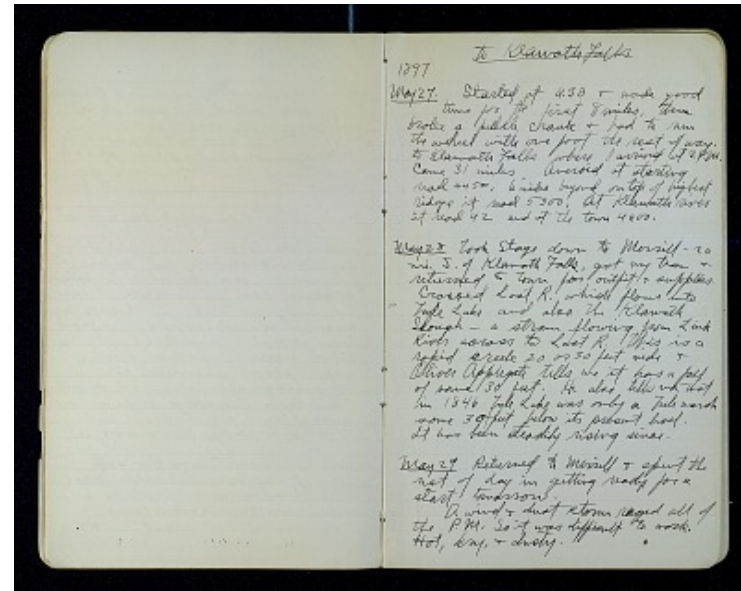 to Klamath Falls
1897
May 27. Started at 4.30 + made good
time for the first 8 miles, then
broke a pedal crank + had to run
the wheel with one foot the rest of way
to Klamath Falls where I arrived at 2 P.M.
Came 31 miles. Aneroid at starting
read 4450, 6 miles beyond on top of highest
ridge it read 5300. At Klamath
it read 42 and at the town 4200.
May 28 Took Stage down to Merrill - 20
mi. S. of Klamath Falls, got my team +
returned to town for outfit + supplies.
Crossed Lost R. which flows into
Tule Lake and also the Klamath
Slough - a stream flowing from Link
River across to Lost R. This is a
rapid creek 20 or 30 feet wide +
Oliver Applegate tells me it has a fall
of some 30 feet. He also tells me that
in 1846 Tule Lake was only a Tule marsh
some 30 feet below its present level.
It has been steadily rising since.
May 29 Returned to Merrill + spent the
rest of day in getting ready for a
start tomorrow.
A wind + dust storm raged all of
the P.M. So it was difficult to work.
Hot, dry, + dusty.